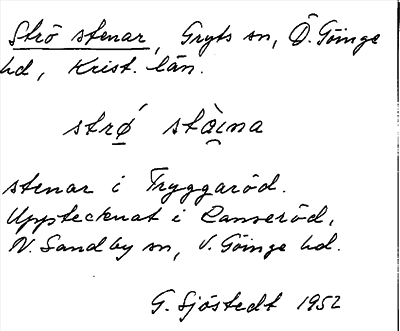 Strö stenar, Gryts sn, Ö. Göinge
hd, Krist. län.
strǿ stàina
stenar i Tryggaröd.
Upptecknat i Lanseröd,
N. Sandby sn, V. Göinge hd.
G. Sjöstedt 1952